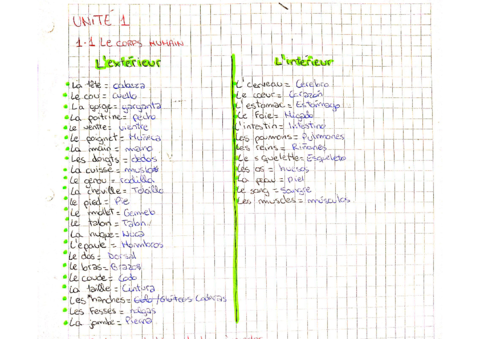 UNITÉ 1
1-1 LE CORPS HUMAIN
L'extérieur
La tête = cabeza
Le cou = cuello
La gorge = garganta
La poitrine = pecho
Le ventre = vientre
Le poignet = Muñeca
La main = mano
Les doigts = dedos
La cuisse = muslo
Le genou = rodilla
La cheville = Tobillo
Le pied = Pie
Le mollet = Gemelo
Le talon = Talón
La nuque = Nuca
L'épaule = Hombros
Le dos = Dorsal
Le bras = Brazos
Le coude = Codo
La taille = Cintura
Les hanches = Caderas
Les Fesses = nalgas
La jambe = Pierna
L'intérieur
L'cerveau = Cerebro
Le cœur = Corazón
L'estomac = Estómago
Le Foie = Hígado
L'intestin = Intestino
Les poumons = Pulmones
Les reins = Riñones
Le squelette = Esqueleto
Les os = huesos
La peau = piel
Le sang = Sangre
Les muscles = músculos